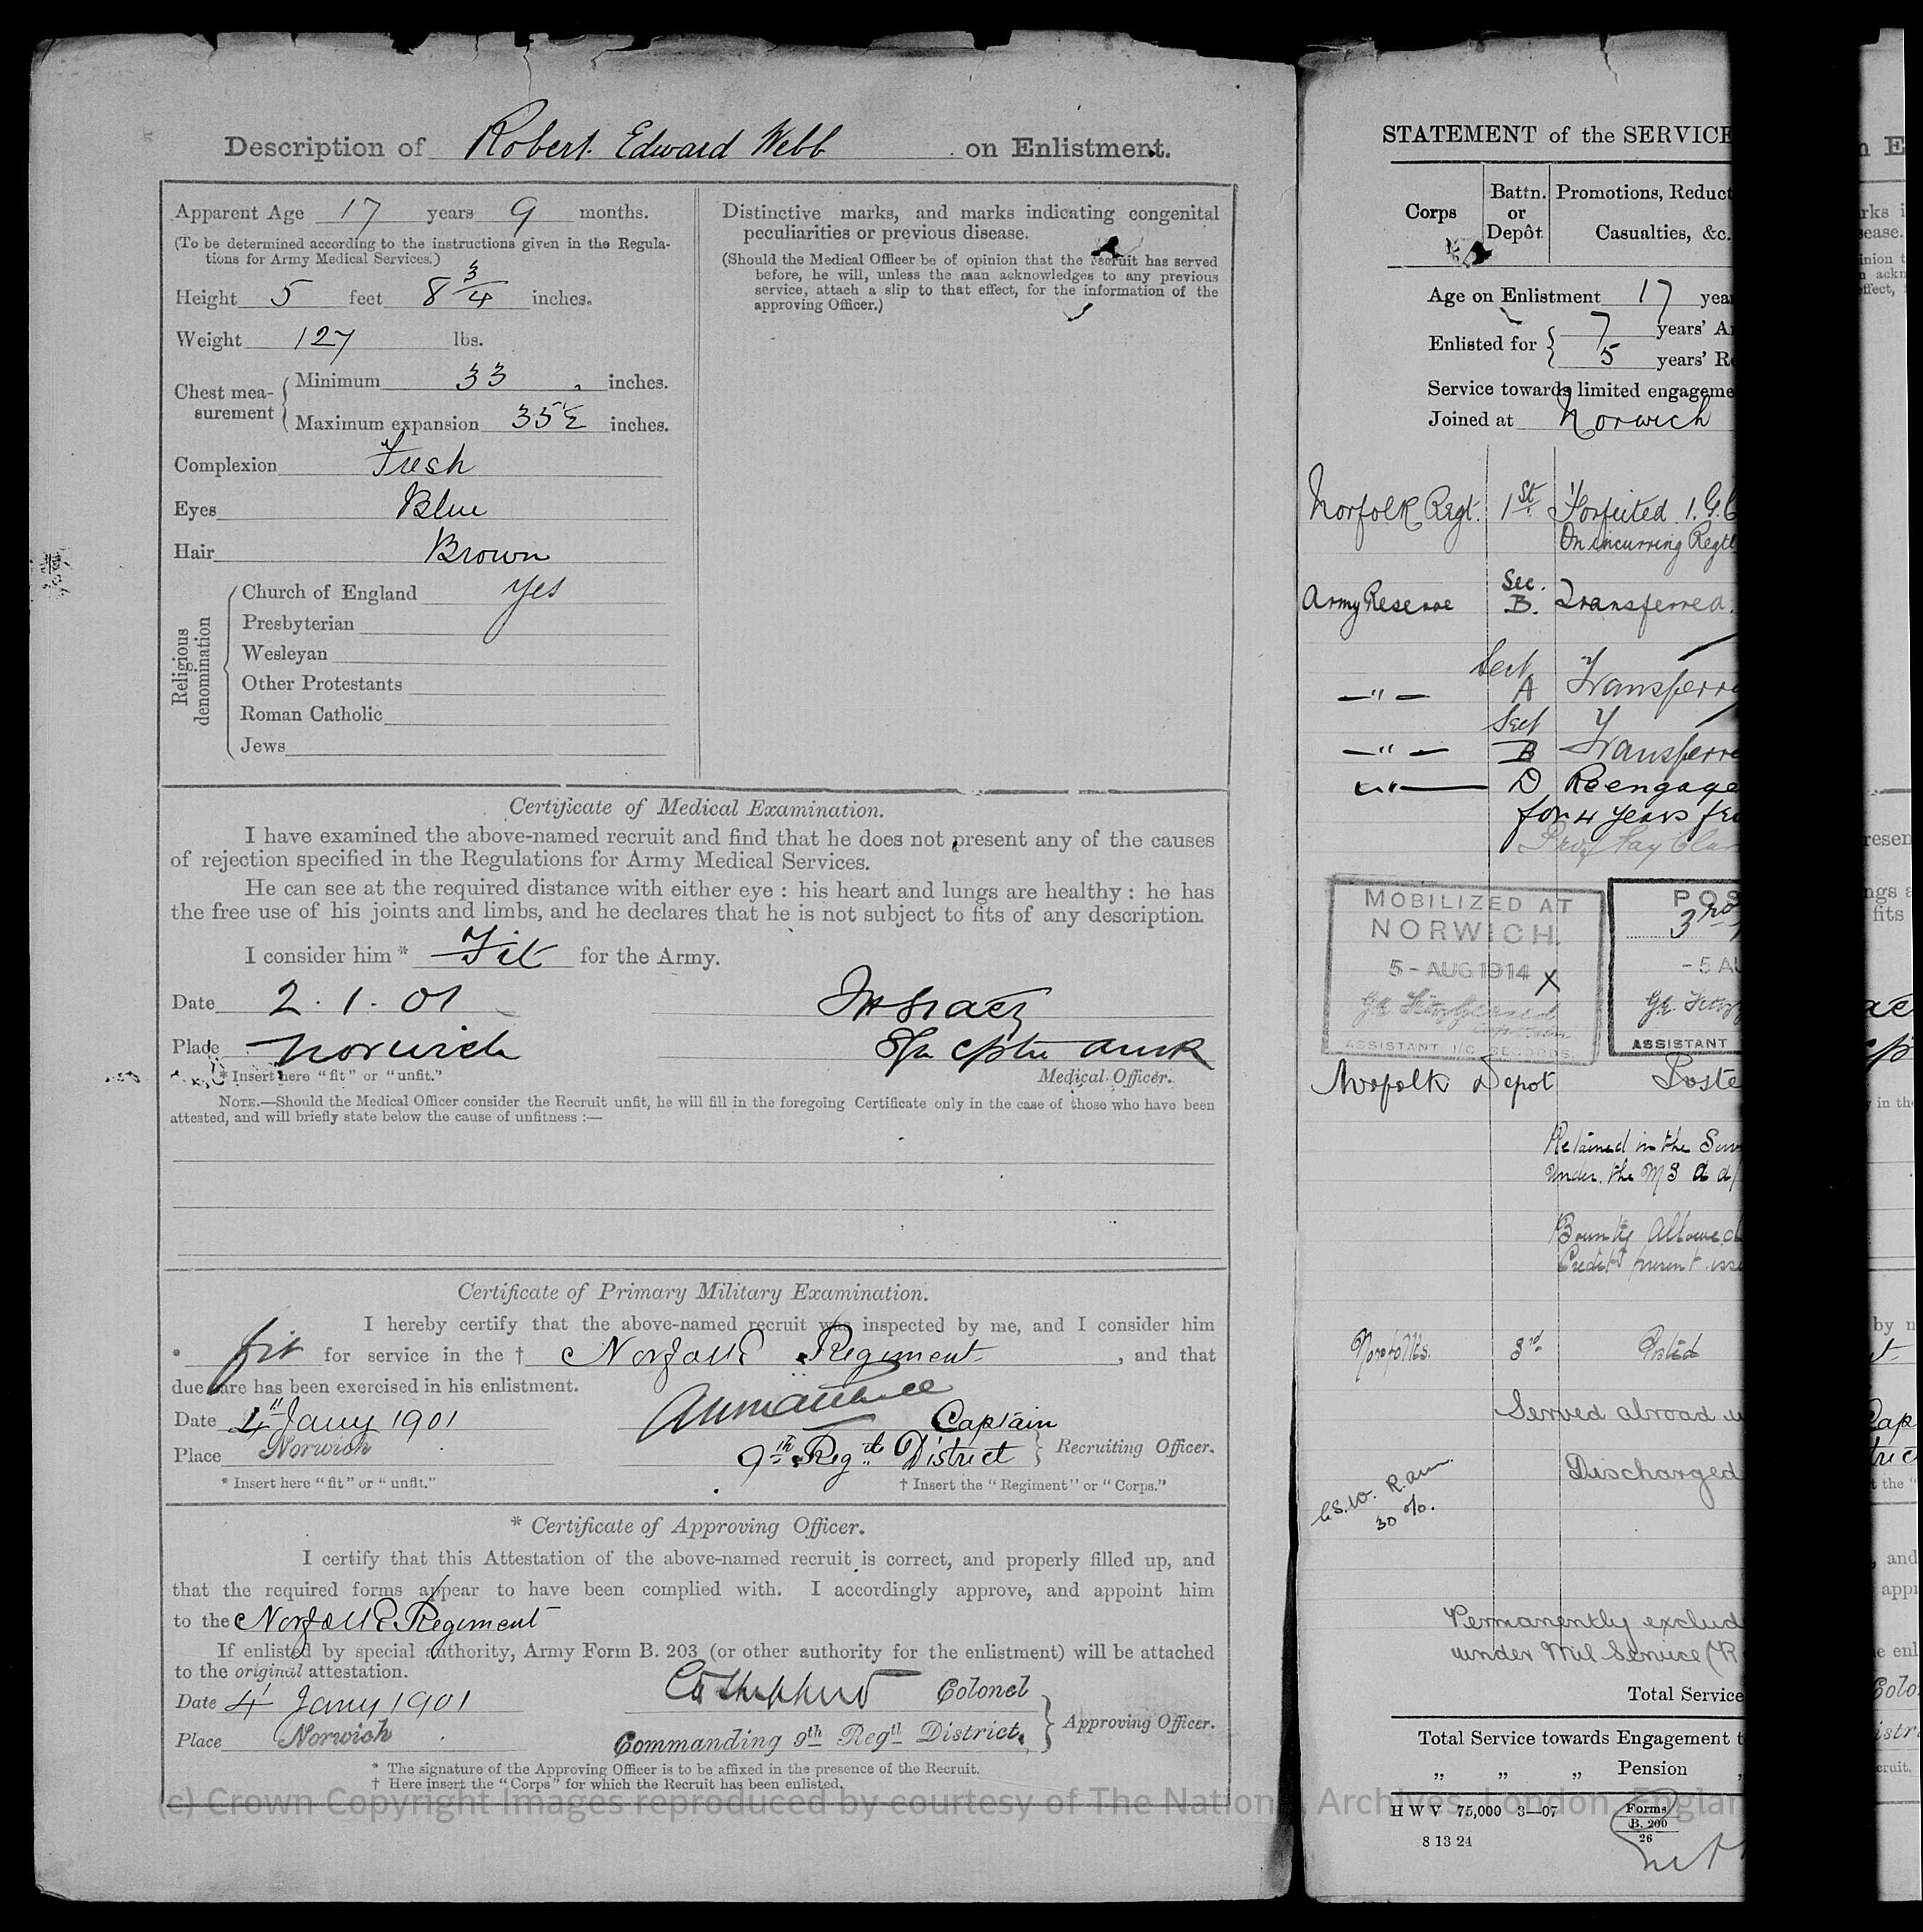 Description of Robert Edward Webb on Enlistment.
Apparent Age 17 years 9 months.
(To be determined according to the instructions given in the Regula-
tions for Army Medical Services.)
Height 5 feet 8 3/4 inches.
Weight 127 lbs.
Chest mea-
surement
Minimum 33 inches.
Maximum expansion 35 1/2 inches.
Complexion Fresh
Eyes Blue
Hair Brown
Religious
denomination
Church of England yes
Presbyterian
Wesleyan
Other Protestants
Roman Catholic
Jews
Distinctive marks, and marks indicating congenital
peculiarities or previous disease.
(Should the Medical Officer be of opinion that the recruit has served
before, he will, unless the man acknowledges to any previous
service, attach a slip to that effect, for the information of the
approving Officer.)
Certificate of Medical Examination.
I have examined the above-named recruit and find that he does not present any of the causes
of rejection specified in the Regulations for Army Medical Services.
He can see at the required distance with either eye : his heart and lungs are healthy : he has
the free use of his joints and limbs, and he declares that he is not subject to fits of any description.
I consider him * Fit for the Army.
Date 2 . 1 . 01
Place Norwich
* Insert here "fit" or "unfit."
Medical Officer.
NOTE.—Should the Medical Officer consider the Recruit unfit, he will fill in the foregoing Certificate only in the case of those who have been
attested, and will briefly state below the cause of unfitness :—
Certificate of Primary Military Examination.
I hereby certify that the above-named recruit was inspected by me, and I consider him
* fit for service in the † Norfolk Regiment , and that
due care has been exercised in his enlistment.
Date 4th Jany 1901
Captain
Place Norwich
9th Regtl District } Recruiting Officer.
* Insert here "fit" or "unfit."
† Insert the "Regiment" or "Corps."
* Certificate of Approving Officer.
I certify that this Attestation of the above-named recruit is correct, and properly filled up, and
that the required forms appear to have been complied with. I accordingly approve, and appoint him
to the Norfolk Regiment
If enlisted by special authority, Army Form B. 203 (or other authority for the enlistment) will be attached
to the original attestation.
Date 4 Jany 1901
Colonel
Place Norwich
Commanding 9th Regtl District. } Approving Officer.
* The signature of the Approving Officer is to be affixed in the presence of the Recruit.
† Here insert the "Corps" for which the Recruit has been enlisted.
(c) Crown Copyright Images reproduced by courtesy of The National Archives, London, Englan
STATEMENT of the SERVICE
Corps
Battn.
or
Depôt
Promotions, Reduct
Casualties, &c.
Age on Enlistment 17 yea
Enlisted for { 7 years' A
5 years' Re
Service towards limited engageme
Joined at Norwich
Norfolk Regt. 1st Forfeited 1. G.C
On incurring Regtl
Army Reserve Sec. B. Transferred
—"— Sect A Transferre
—"— Sect B Transferre
—"— D Reengage
for 4 years fr
MOBILIZED AT
NORWICH.
5 - AUG 1914
ASSISTANT I/C RECORDS.
POS
3rd
- 5 AU
ASSISTANT
Norfolk Depot Poste
Retained in the Serv
under the M S A
Bounty Allowed
Credit present iss
Norfolks. 3rd Posted
Served abroad u
Discharged
30 %.
Permanently exclud
under Mil Service (R
Total Service
Total Service towards Engagement t
" " " Pension "
H W V 75,000 3—07
8 13 24
Forms
B. 200
26